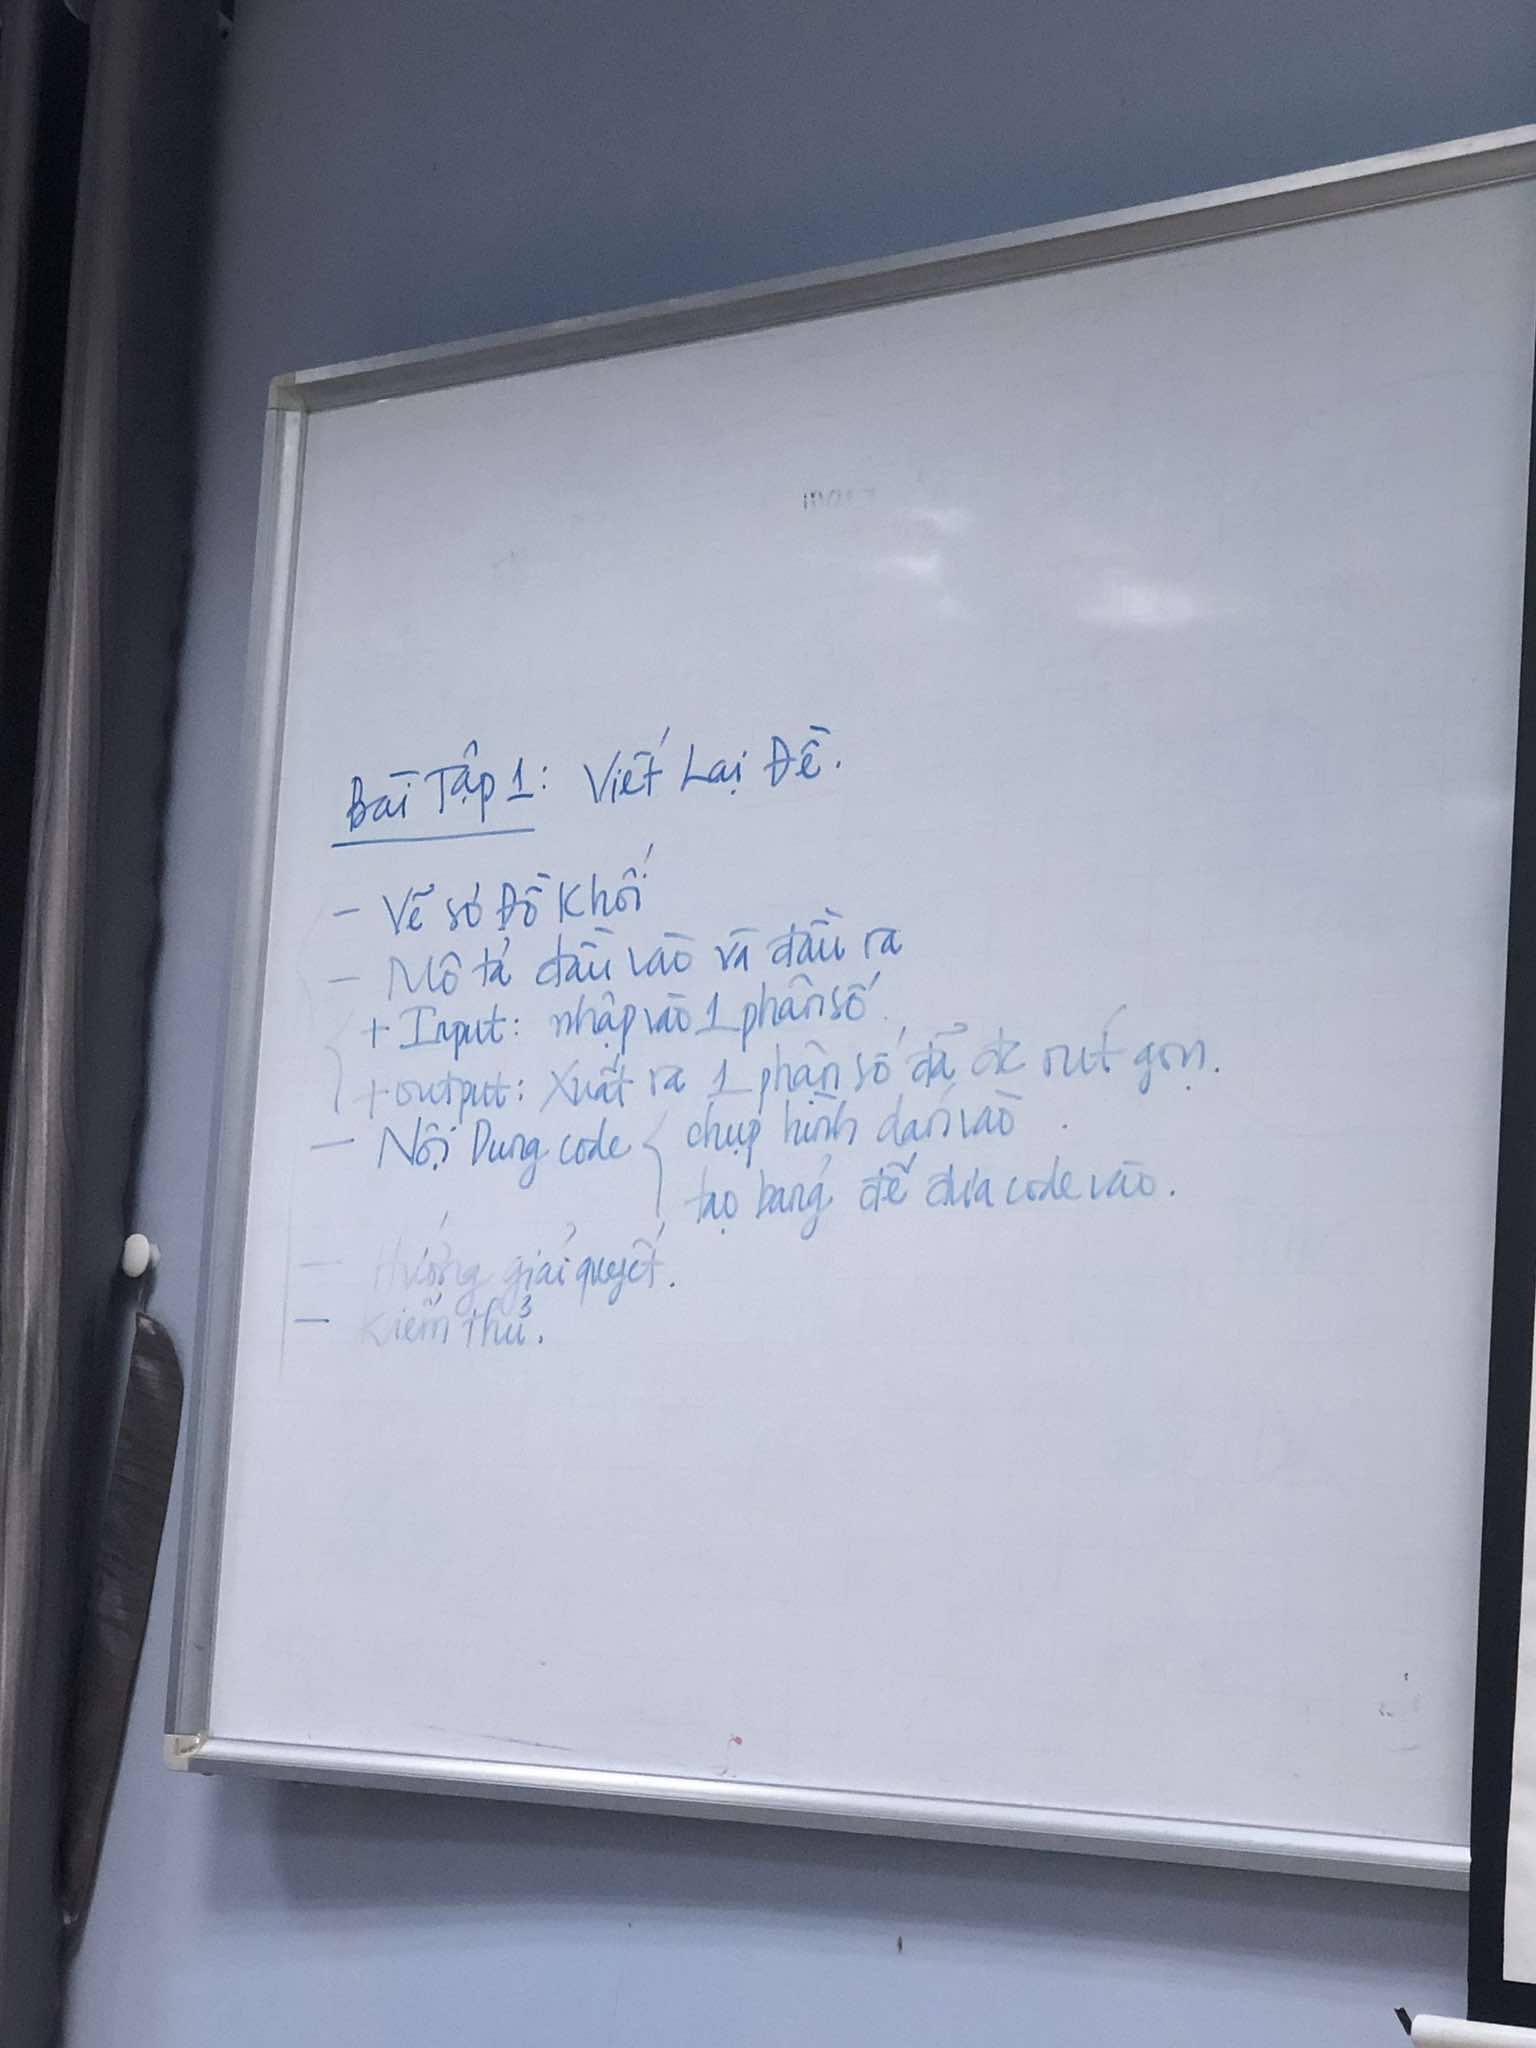 Bài Tập 1: Viết Lại Đề.
- Vẽ sơ Đồ Khối
- Mô tả đầu vào và đầu ra
+ Input: nhập vào 1 phân số.
+ output: Xuất ra 1 phân số đã đc rút gọn.
- Nội Dung code { chụp hình dán vào.
tạo bảng để đưa code vào.
- Hướng giải quyết.
- Kiểm thử.